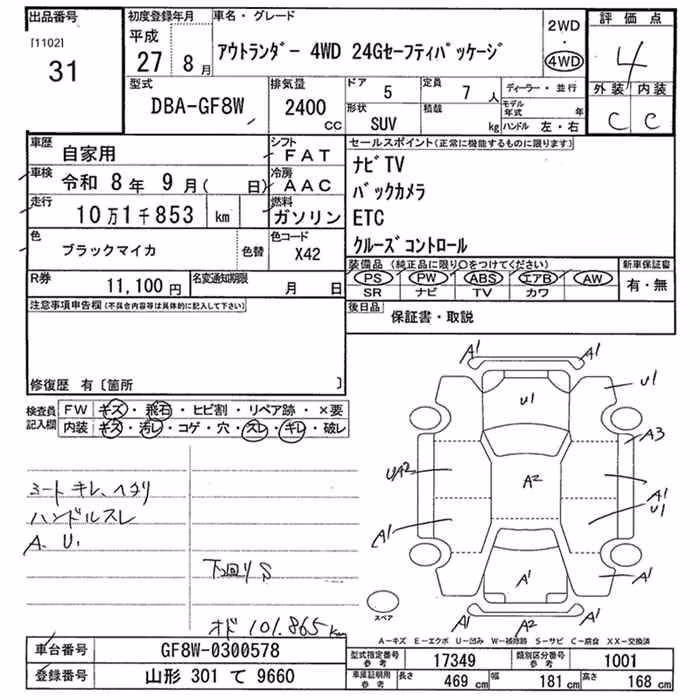 出品番号
[1102]
31
初度登録年月
平成
27 8月
車名・グレード
アウトランダー 4WD 24Gセーフティパッケージ
2WD
・
4WD
評価点
4
外装 内装
C C
型式
DBA-GF8W
排気量
2400
cc
ドア
5
定員
7 人
形状
SUV
積載
kg
ディーラー・並行
モデル年式 年
ハンドル 左・右
車歴
自家用
シフト
FAT
車検
令和 8年 9月( 日)
冷房
AAC
走行
10万1千853 km
燃料
ガソリン
色
ブラックマイカ
色替
色コード
X42
R券
11,100 円
名変通知期限
月 日
セールスポイント(正常に機能するものに限ります)
ナビTV
バックカメラ
ETC
クルーズコントロール
装備品 (純正品に限り○をつけてください)
PS PW ABS エアB AW
SR ナビ TV カワ
新車保証書
有・無
後日品
保証書・取説
注意事項申告欄(不具合内容等は具体的に記入して下さい)
修復歴 有〔箇所 〕
検査員
記入欄
FW キズ・飛石・ヒビ割・リペア跡・×要
内装 キズ・汚レ・コゲ・穴・スレ・キレ・破レ
シートキレ、ヘタリ
ハンドルスレ
A. U1
下回りS
オド 101.865km
A1 A1
U1 U1
A3
UA2 A2
A1 U1
A1
A1 A1
A1 A2 A1
スペア
A−キズ E−エクボ U−凹み W−補修跡 S−サビ C−腐食 XX−交換済
車台番号
GF8W-0300578
登録番号
山形 301 て 9660
型式指定番号
参考
17349
類別区分番号
参考
1001
車庫証明用
参考
長さ 469 cm 幅 181 cm 高さ 168 cm